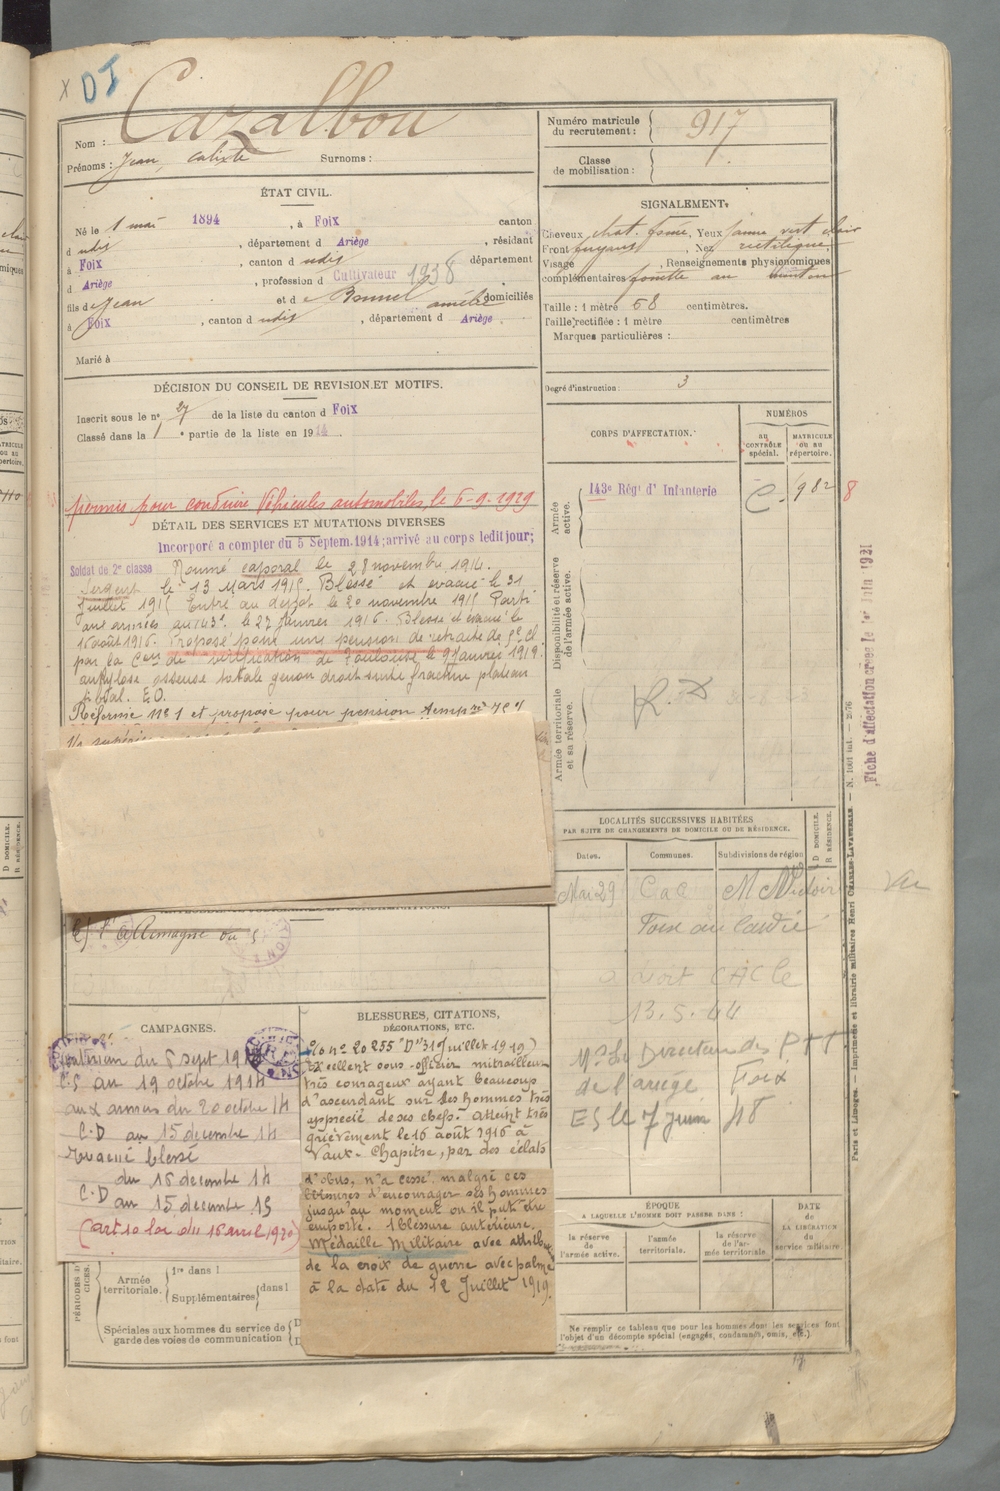 X DJ
Nom : Cazalbou
Prénoms : Jean, calixte Surnoms :
Numéro matricule
du recrutement : 917
Classe
de mobilisation :
ÉTAT CIVIL.
Né le 1 mai 1894, à Foix canton
d udit, département d Ariège, résidant
à Foix, canton d udit département
d Ariège, profession d Cultivateur 1938
fils de Jean et de Bonnel amélie domiciliés
à Foix, canton d udit, département d Ariège
Marié à
SIGNALEMENT.
Cheveux chat. foncé, Yeux jaune vert clair
Front fuyant, Nez rectiligne,
Visage, Renseignements physionomiques
complémentaires fossette au menton
Taille : 1 mètre 68 centimètres.
Taille rectifiée : 1 mètre centimètres
Marques particulières :
Degré d'instruction : 3
DÉCISION DU CONSEIL DE REVISION ET MOTIFS.
Inscrit sous le nº 27 de la liste du canton d Foix
Classé dans la 1 e partie de la liste en 1914.
permis pour conduire Véhicules automobiles, le 6-9-1929
DÉTAIL DES SERVICES ET MUTATIONS DIVERSES
Incorporé a compter du 5 Septem. 1914; arrivé au corps ledit jour;
Soldat de 2e classe Nommé caporal le 28 novembre 1914.
Sergent le 13 Mars 1915. Blessé et évacué le 31
juillet 1915 Entré au depot le 20 novembre 1915 Parti
aux armées au 143e le 27 Janvier 1916. Blessé et évacué le
16 août 1916. Proposé pour une pension de retraite de 5e Cl
par la Com de vérification de Toulouse le 9 Janvier 1919.
ankylose osseuse totale genou droit suite fracture plateau
tibial. EO.
Réformé Nº 1 et proposé pour pension temp
CORPS D'AFFECTATION.
NUMÉROS
au
CONTRÔLE
spécial.
MATRICULE
ou au
répertoire.
Armée
active.
143e Régt d' Infanterie C. 982 8
Disponibilité et réserve
de l'armée active.
Armée territoriale
et sa réserve.
Fiche d'affectation créée le 1er Juin 1931
LOCALITÉS SUCCESSIVES HABITÉES
PAR SUITE DE CHANGEMENTS DE DOMICILE OU DE RÉSIDENCE.
Dates.
Communes.
Subdivisions de région
D DOMICILE.
R RÉSIDENCE.
Mai 29 CaC
Foix
13.5.44
Mr Le Directeur des PTT
de l'ariège Foix
ES le 7 Juin 48
CAMPAGNES.
Intérieur du 5 sept 1914
C.S au 19 octobre 1914
aux armées du 20 octobre 14
C.D au 15 decembre 14
evacué blessé
du 16 decembre 14
C.D au 15 decembre 15
(art 10 loi du 16 avril 1920)
BLESSURES, CITATIONS,
DÉCORATIONS, ETC.
nº 20255 "D" 31 Juillet 1919)
Excellent sous-officier mitrailleur
très courageux ayant beaucoup
d'ascendant sur ses hommes très
apprécié de ses chefs. Atteint très
grièvement le 16 août 1916 à
Vaux-Chapitre, par des éclats
d'obus, n'a cessé malgré ces
blessures d'encourager ses hommes
jusqu'au moment ou il put être
emporté. 1 blessure antérieure.
Médaille Militaire avec attribu
de la croix de guerre avec palme
à la date du 12 Juillet 1919.
PÉRIODES D'
CICES.
Armée
territoriale.
1re dans l
Supplémentaires dans l
Spéciales aux hommes du service de
garde des voies de communication
ÉPOQUE
A LAQUELLE L'HOMME DOIT PASSER DANS :
la réserve
de l'armée active.
l'armée
territoriale.
la réserve
de l'ar-
mée territoriale
DATE
de
LA LIBÉRATION
du
service militaire.
Ne remplir ce tableau que pour les hommes dont les services font
l'objet d'un décompte spécial (engagés, condamnés, omis, etc.)
Paris et Limoges. — Imprimerie et librairie militaires Henri CHARLES-LAVAUZELLE. — N. 1001 int. — 2076